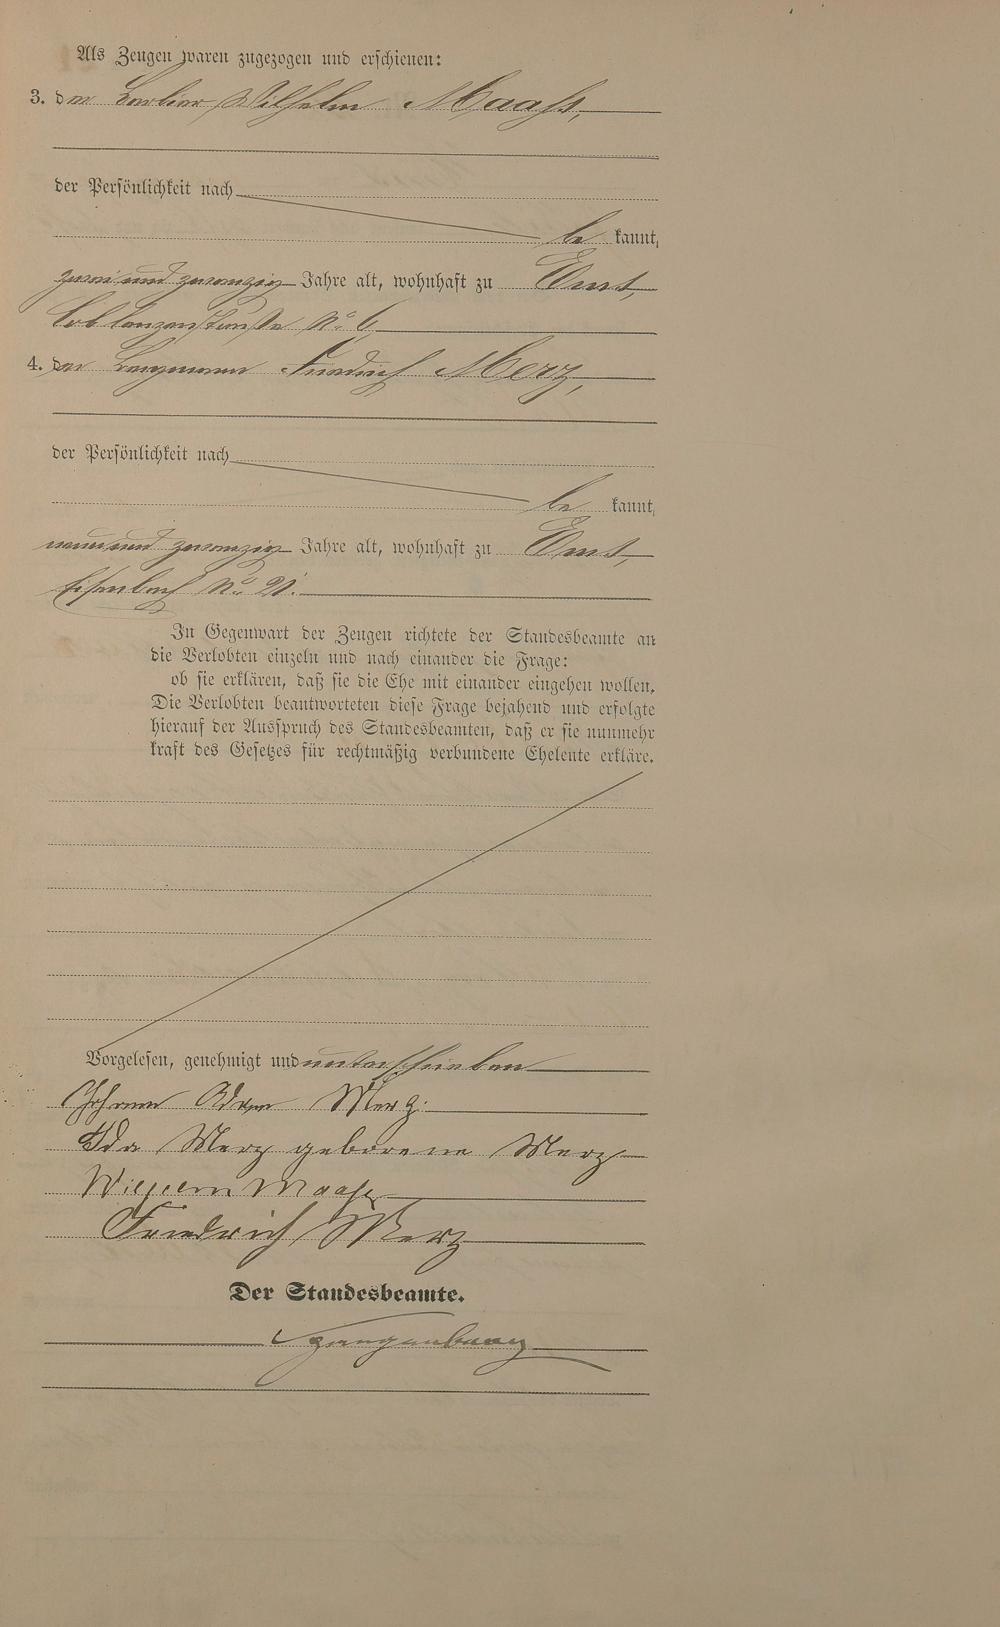 Als Zeugen waren zugezogen und erschienen:
3. der Wilhelm Maaß,
der Persönlichkeit nach
be kannt,
zwei und zwanzig Jahre alt, wohnhaft zu Ems,
Coblenzerstraße No. 6,
4. der Bergmann Friedrich Merz,
der Persönlichkeit nach
be kannt,
neun und zwanzig Jahre alt, wohnhaft zu Ems,
Eisenbach No. 21.
In Gegenwart der Zeugen richtete der Standesbeamte an
die Verlobten einzeln und nach einander die Frage:
ob sie erklären, daß sie die Ehe mit einander eingehen wollen.
Die Verlobten beantworteten diese Frage bejahend und erfolgte
hierauf der Ausspruch des Standesbeamten, daß er sie nunmehr
kraft des Gesetzes für rechtmäßig verbundene Eheleute erkläre.
Vorgelesen, genehmigt und unterschrieben
Johann Adam Merz.
Ida Merz geborene Merz
Wilhelm Maaß
Friedrich Merz
Der Standesbeamte.